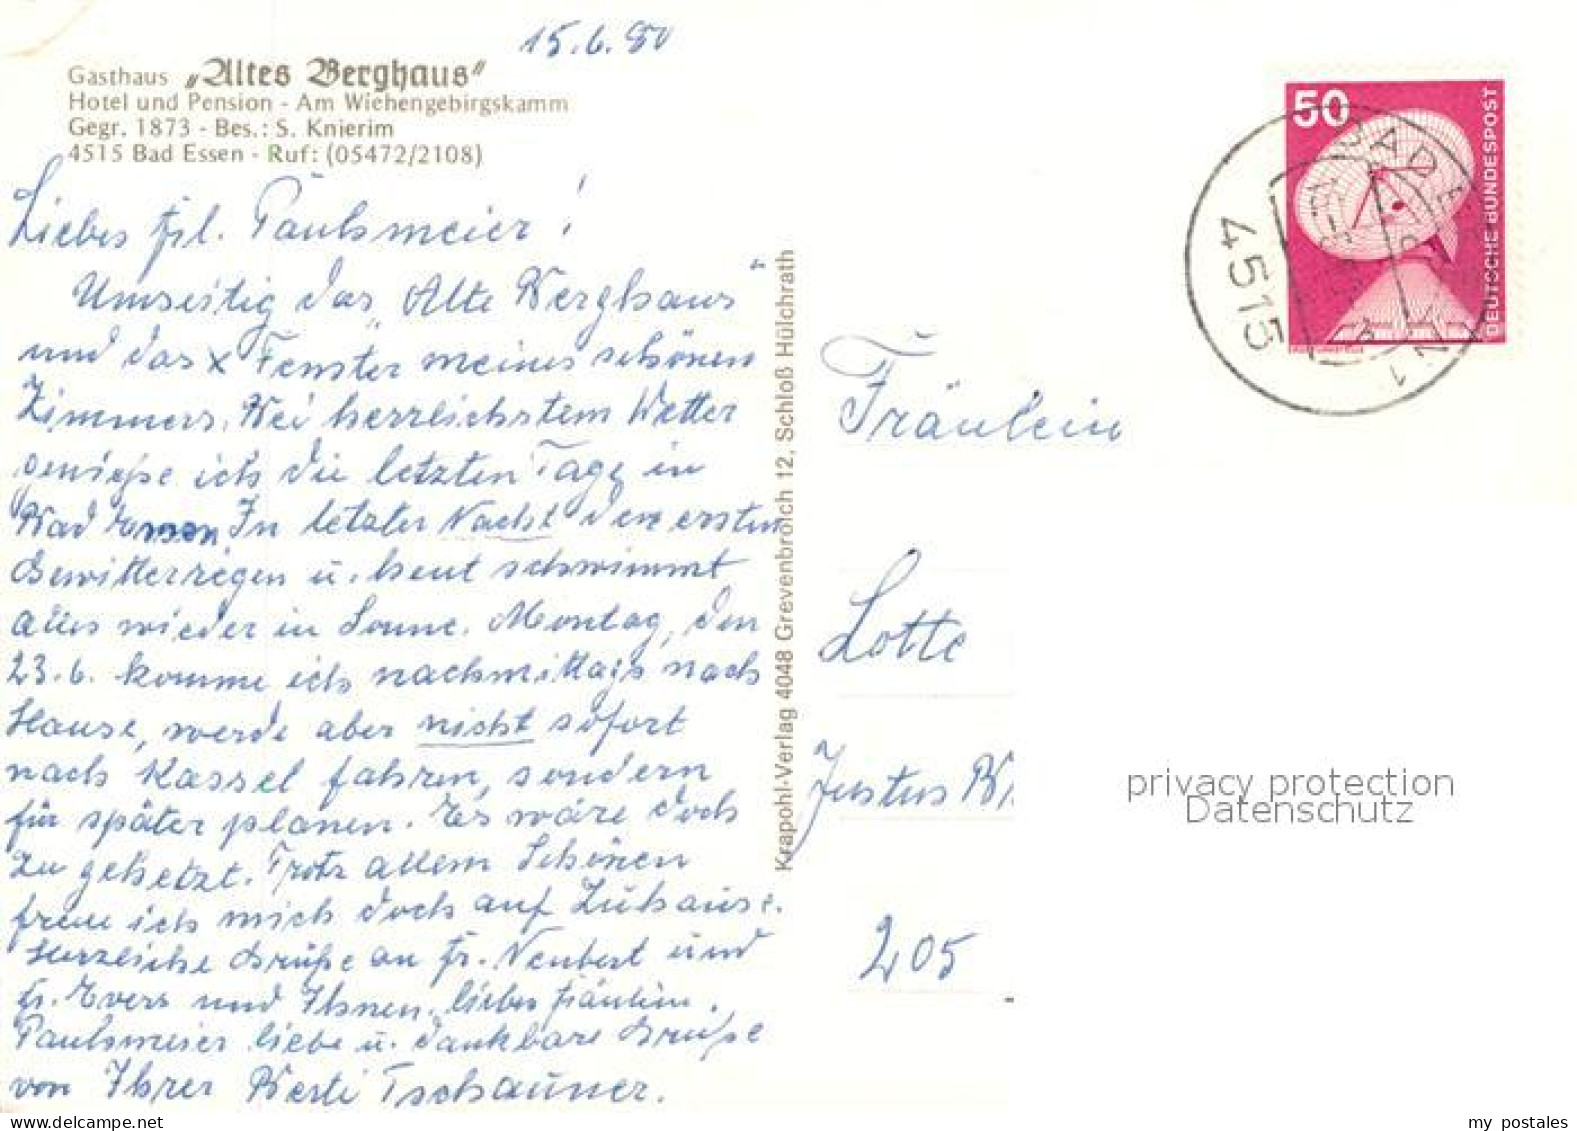 15.6.80
Gasthaus „Altes Berghaus"
Hotel und Pension - Am Wiehengebirgskamm
Gegr. 1873 - Bes.: S. Knierim
4515 Bad Essen - Ruf: (05472/2108)
Liebes Frl. Paulsmeier!
Umseitig das „Alte Berghaus"
und das x Fenster meines schönen
Zimmers. Bei herrlichstem Wetter
genieße ich die letzten Tage in
Bad Essen. In letzter Nacht den ersten
Gewitterregen u. heut schwimmt
alles wieder in Sonne. Montag, den
23.6. komme ich nachmittags nach
Hause, werde aber nicht sofort
nach Kassel fahren, sondern
für später planen. Es wäre doch
zu gehetzt. Trotz allem Schönen
freue ich mich doch auf Zuhause.
Herzliche Grüße an Fr. Neubert und
Fr. Evers und Ihnen, liebes Fräulein
Paulsmeier liebe u. dankbare Grüße
von Ihrer Berti Tschauner.
Krapohl-Verlag 4048 Grevenbroich 12, Schloß Hülchrath
50
DEUTSCHE BUNDESPOST
4515
1
Fräulein
Lotte
Justus
205
privacy protection
Datenschutz
my postales